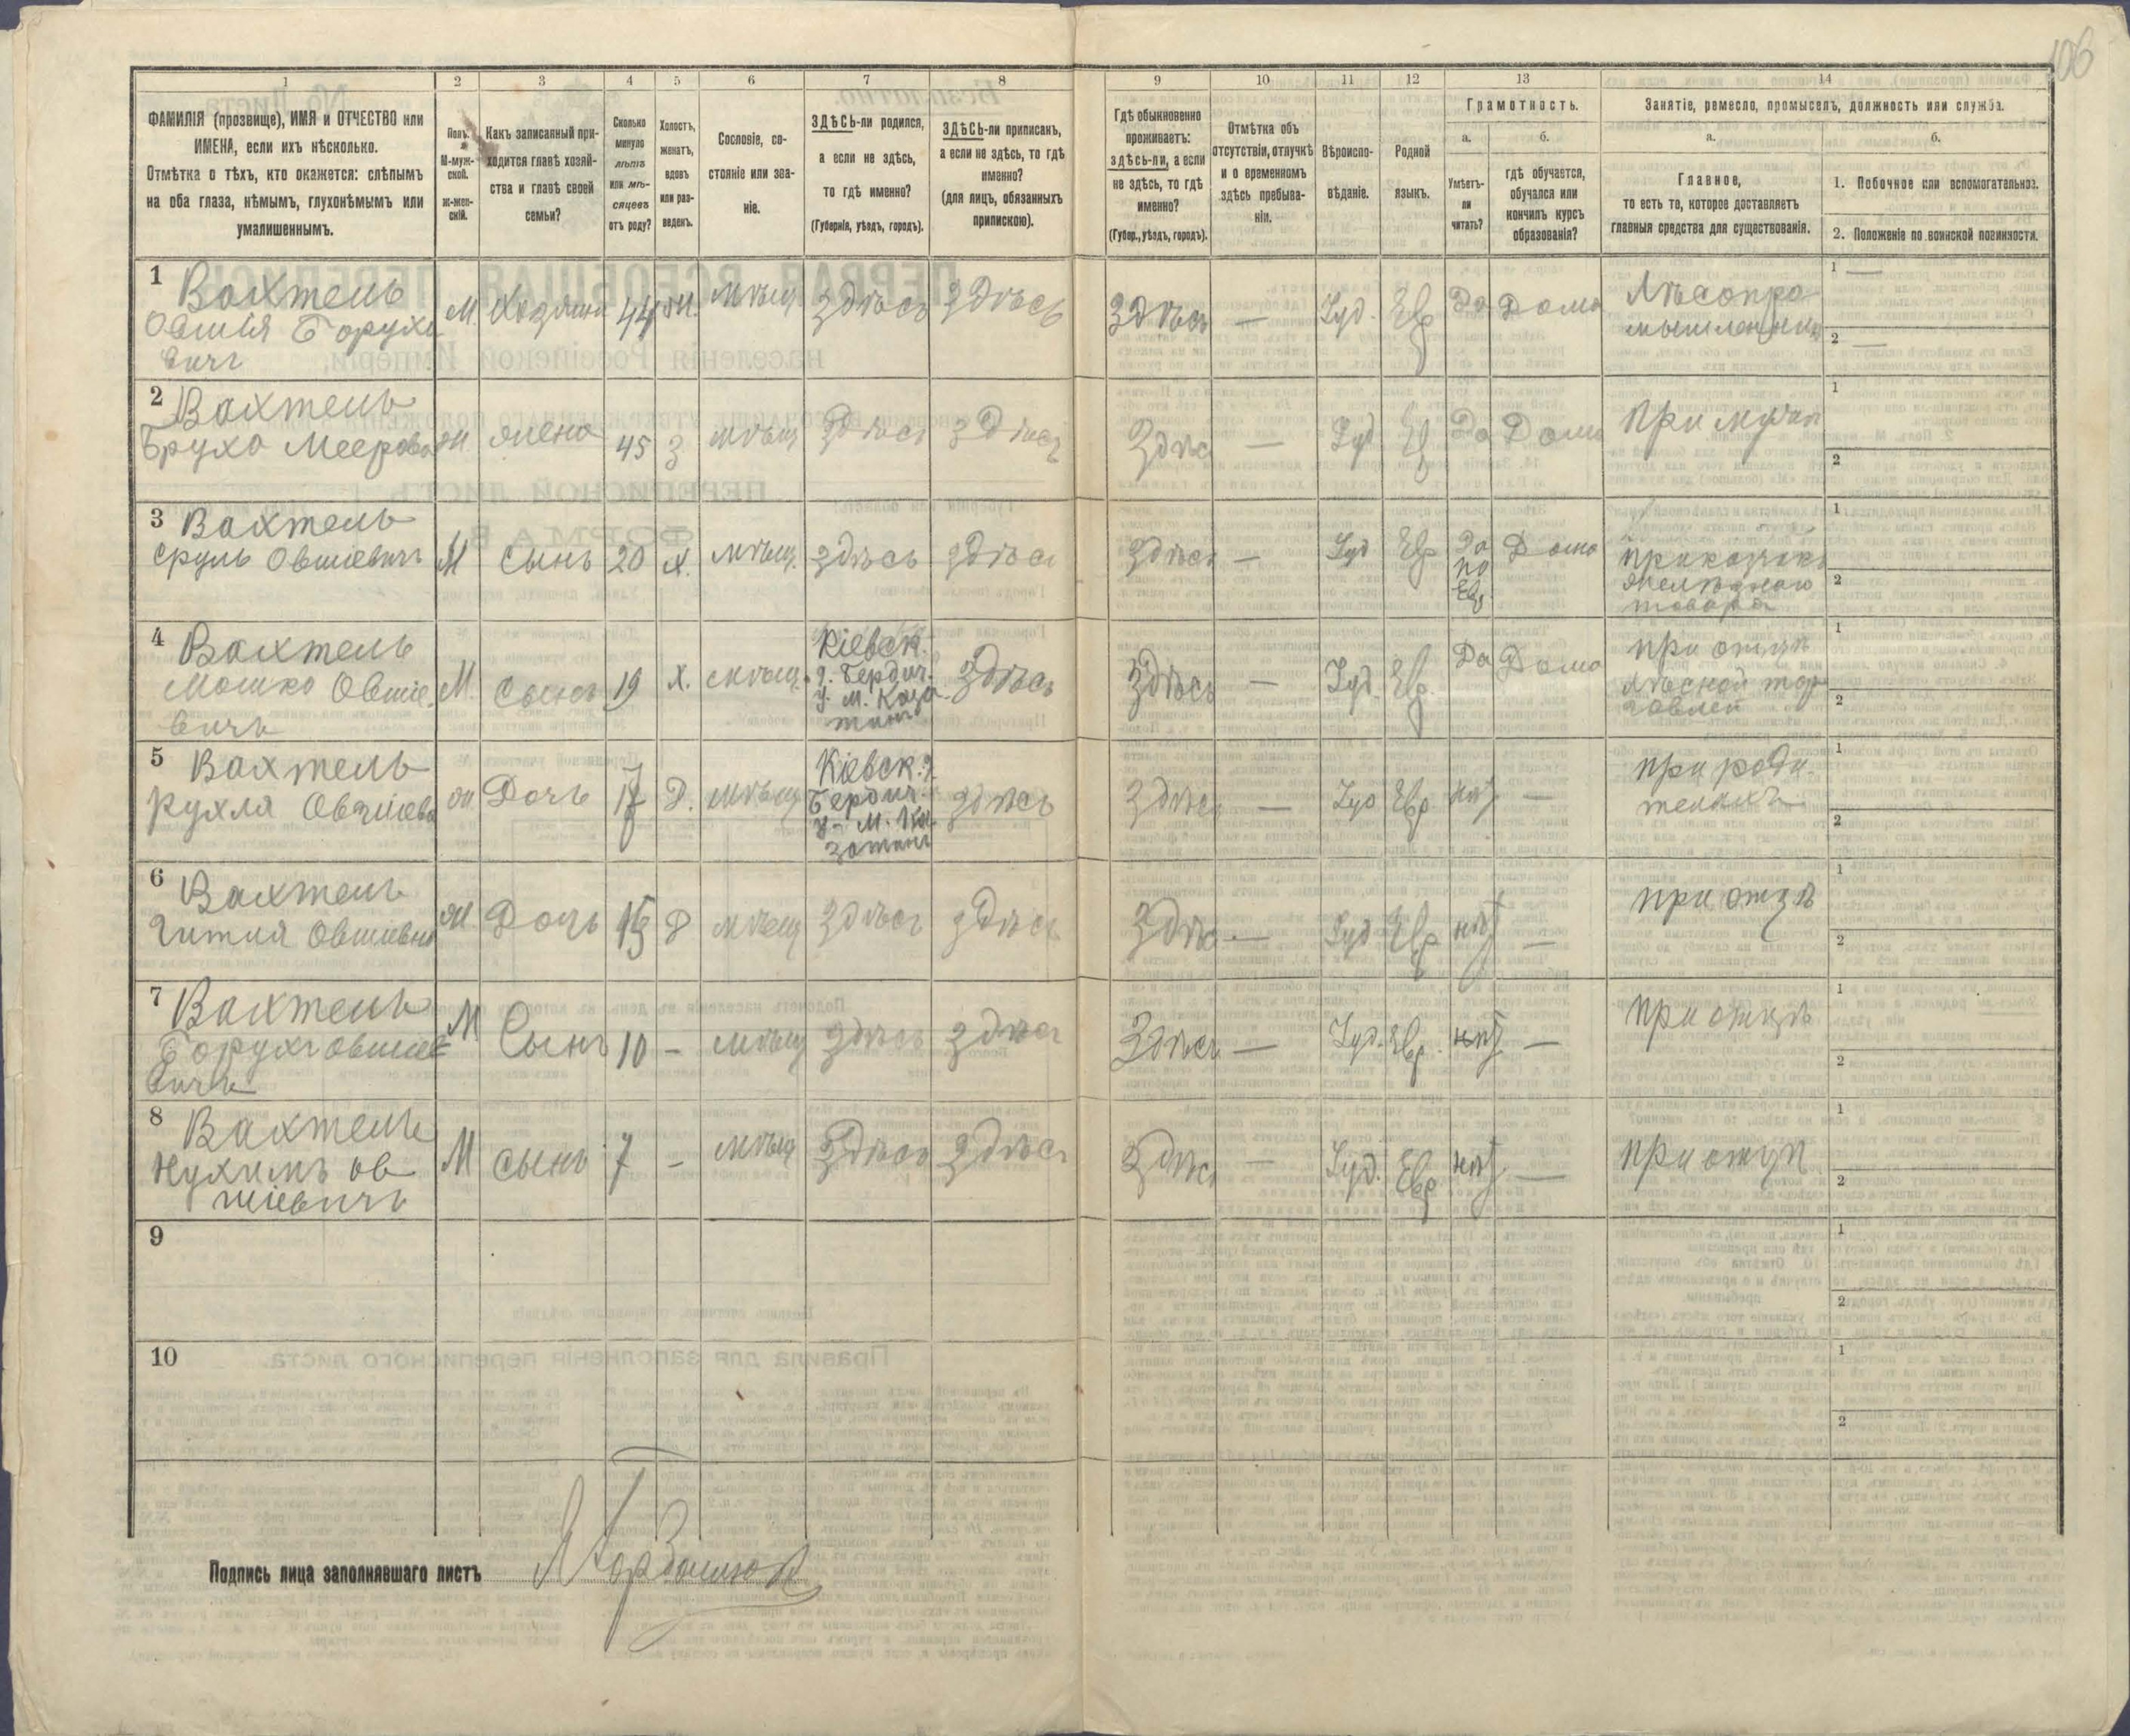 106
1
2
3
4
5
6
7
8
9
10
11
12
13
14
ФАМИЛІЯ (прозвище), ИМЯ и ОТЧЕСТВО или
ИМЕНА, если ихъ нѣсколько.
Отмѣтка о тѣхъ, кто окажется: слѣпымъ
на оба глаза, нѣмымъ, глухонѣмымъ или
умалишеннымъ.
Полъ.
М-муж-
ской.
ж-жен-
скій.
Какъ записанный при-
ходится главѣ хозяй-
ства и главѣ своей
семьи?
Сколько
минуло
лѣтъ
или мѣ-
сяцевъ
отъ роду?
Холостъ,
женатъ,
вдовъ
или раз-
веденъ.
Сословіе, со-
стояніе или зва-
ніе.
ЗДѢСЬ-ли родился,
а если не здѣсь,
то гдѣ именно?
(Губернія, уѣздъ, городъ).
ЗДѢСЬ-ли приписанъ,
а если не здѣсь, то гдѣ
именно?
(для лицъ, обязанныхъ
припискою).
Гдѣ обыкновенно
проживаетъ:
здѣсь-ли, а если
не здѣсь, то гдѣ
именно?
(Губер., уѣздъ, городъ).
Отмѣтка объ
отсутствіи, отлучкѣ
и о временномъ
здѣсь пребыва-
ніи.
Вѣроиспо-
вѣданіе.
Родной
языкъ.
Грамотность.
а.
Умѣетъ-
ли
читать?
б.
гдѣ обучается,
обучался или
кончилъ курсъ
образованія?
Занятіе, ремесло, промыселъ, должность или служба.
а.
Главное,
то есть то, которое доставляетъ
главныя средства для существованія.
б.
1. Побочное или вспомогательное.
2. Положеніе по воинской повинности.
1 Вахтель
Овшія Борухо
вичъ
М. Хозяинъ 44 ж. мѣщ. здѣсь здѣсь здѣсь — Іуд. Евр Да Дома
Лѣсопро
мышленникъ
1 —
2 —
2 Вахтель
Бруха Меерова
ж. жена 45 З мѣщ здѣсь здѣсь здѣсь — Іуд Евр Да Дома
При мужѣ
1
2
3 Вахтель
Сруль Овшіевичъ
М Сынъ 20 х. мѣщ. здѣсь здѣсь здѣсь — Іуд Евр
Да
по
Евр
Дома
приказчикъ
желѣзнаго
товара
1
2
4 Вахтель
Мошко Овшіе
вичъ
М. Сынъ 19 х. мѣщ.
Кіевск.
г. Бердич.
у. м. Каза
тинъ
здѣсь здѣсь — Іуд. Евр. Да Дома
при отцѣ
лѣсной тор
говлей
1
2
5 Вахтель
Рухля Овшіева
ж. Дочь 17 Д. мѣщ
Кіевск. г.
Бердич.
у. М. Ка
затинъ
здѣсь здѣсь — Іуд Евр нѣт —
при роди
теляхъ
1
2
6 Вахтель
Гитля Овшіевна
ж Дочь Д мѣщ здѣсь здѣсь здѣсь — Іуд Евр нѣт —
при отцѣ
1
2
7 Вахтель
Борухъ Овшіе
вичъ
М Сынъ 10 - мѣщ здѣсь здѣсь здѣсь — Іуд. Евр. нѣт —
при отцѣ
1
2
8 Вахтель
Нухимъ Ов
шіевичъ
М сынъ 7 - мѣщ здѣсь здѣсь здѣсь — Іуд. Евр нѣт —
при отцѣ
1
2
9
1
2
10
1
2
Подпись лица заполнявшаго листъ